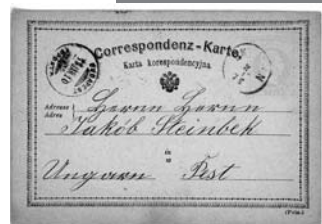 Correspondenz-Karte.
Karta korespondencyjna.
Adresse
Adres
Herrn Herrn
Jakób Steinbek
in
w
Ungarn Pest
(Poln.)